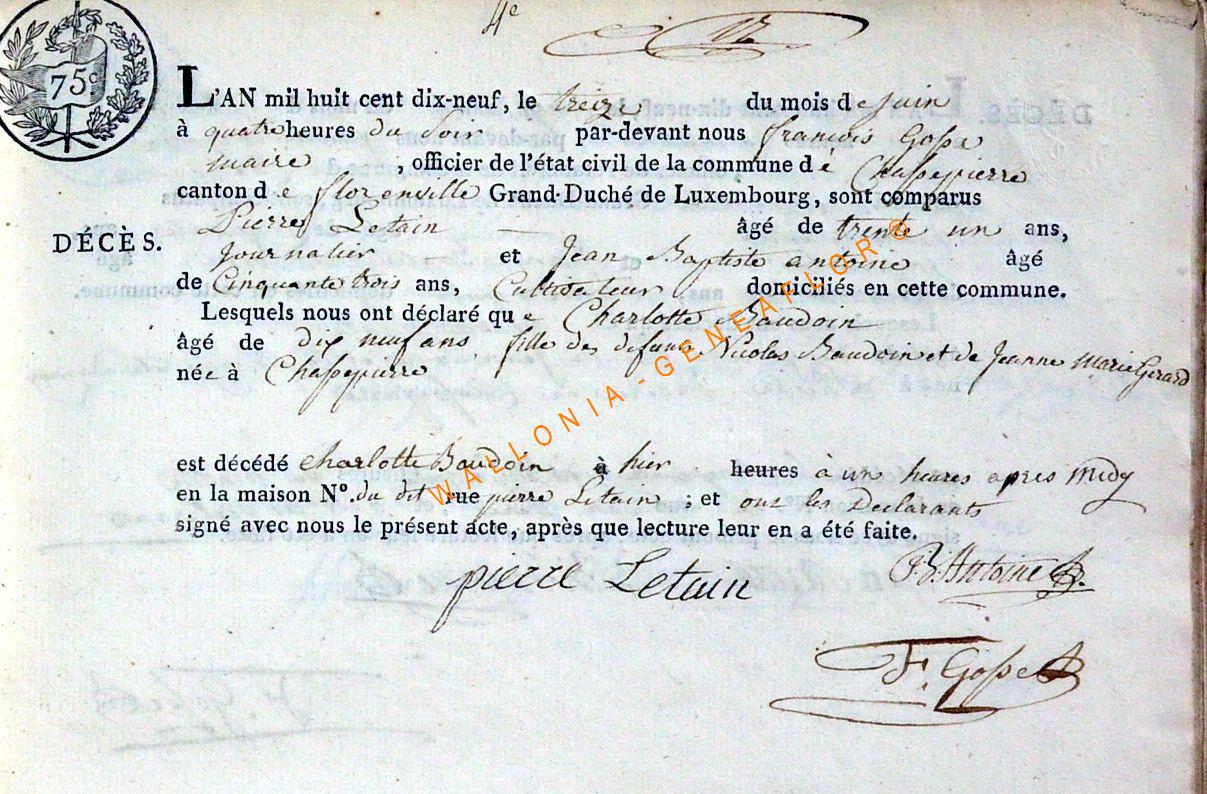 4e
75c
L'AN mil huit cent dix-neuf, le treize du mois de Juin
à quatre heures du Soir par-devant nous françois Gosse
maire, officier de l'état civil de la commune dé Chassepierre
canton de florenville Grand-Duché de Luxembourg, sont comparus
Pierre Letain âgé de trente un ans,
DÉCÈS.
Journalier et Jean Baptiste antoine âgé
de Cinquante trois ans, Cultivateur domiciliés en cette commune.
Lesquels nous ont déclaré que Charlotte Baudoin
âgé de dix neuf ans fille des defunts Nicolas Baudoin et de Jeanne Marie Girard
née à Chassepierre
est décédé Charlotte Baudoin à hier heures à un heures apres midy
en la maison N°. du dit rue pierre Letain ; et ont les Declarants
signé avec nous le présent acte, après que lecture leur en a été faite.
pierre Letain
Antoine
F. Gosse
WALLONIA-GENEAFLOR©